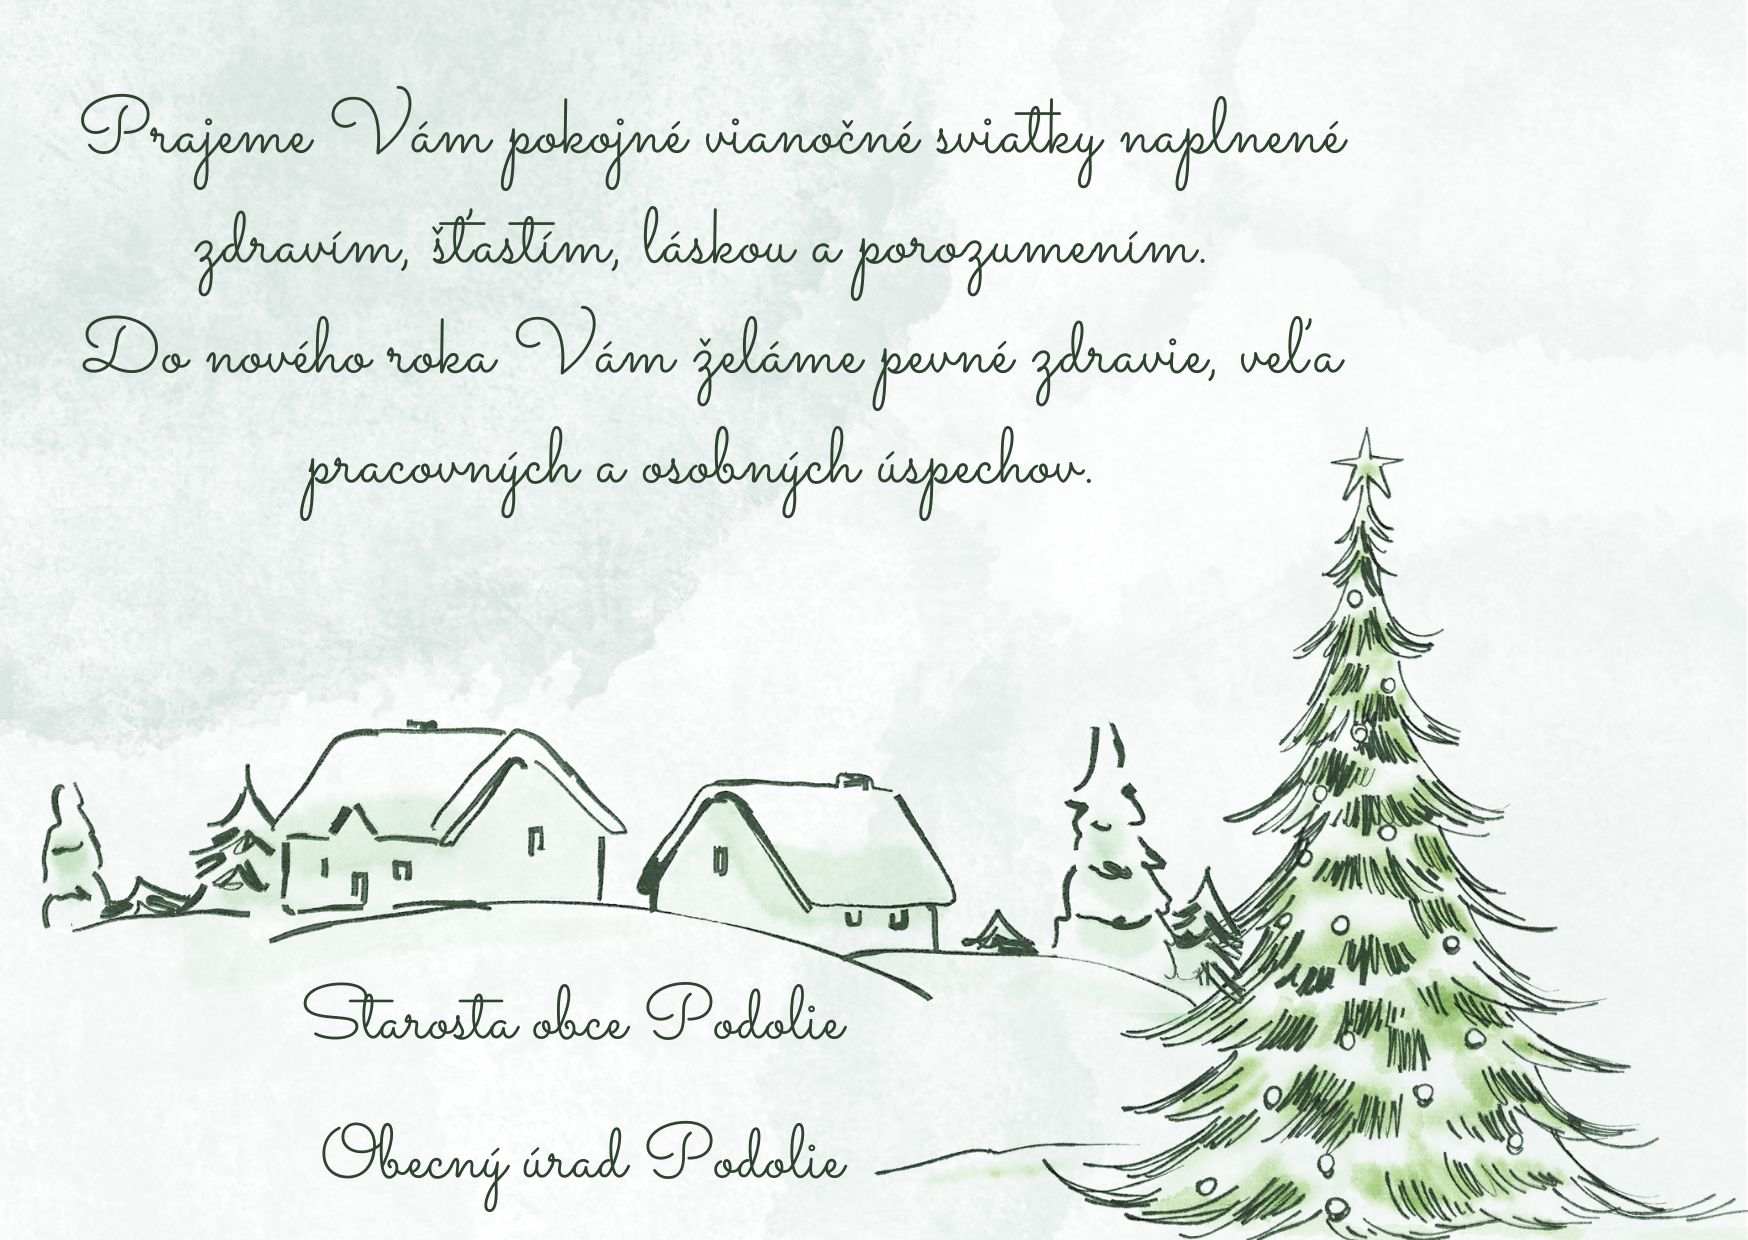 Prajeme Vám pokojné vianočné sviatky naplnené
zdravím, šťastím, láskou a porozumením.
Do nového roka Vám želáme pevné zdravie, veľa
pracovných a osobných úspechov.
Starosta obce Podolie
Obecný úrad Podolie